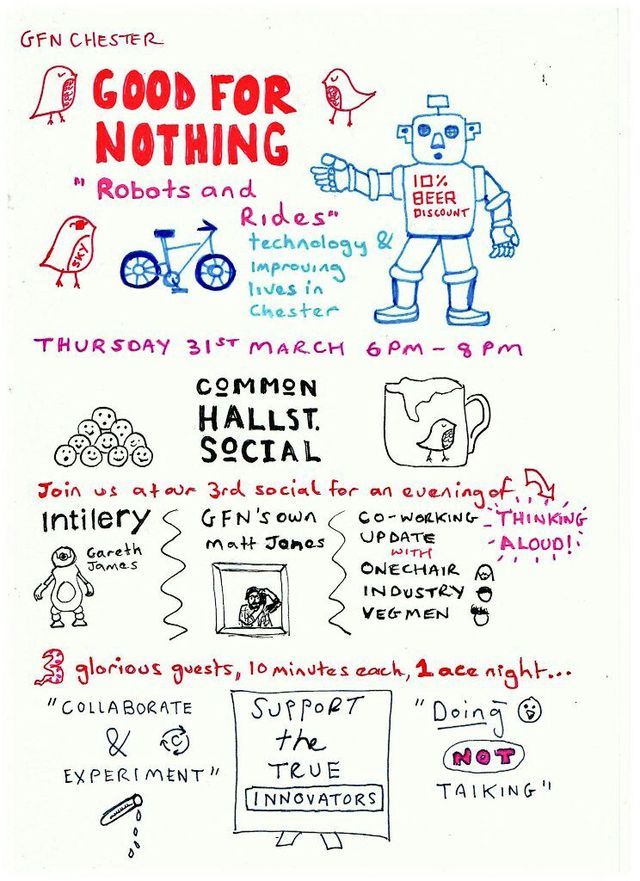 GFN CHESTER
GOOD FOR
NOTHING
"Robots and
Rides"
10%
BEER
DISCOUNT
SKY
technology &
improving
lives in
Chester
THURSDAY 31ST MARCH 6PM - 8PM
COMMON
HALL ST.
SOCIAL
Join us at our 3rd social for an evening of
THINKING
ALOUD!
Intilery
Gareth
James
GFN'S own
Matt Jones
CO-WORKING
UPDATE
WITH
ONECHAIR
INDUSTRY
VEGMEN
3 glorious guests, 10 minutes each, 1 ace night...
"COLLABORATE
& C
EXPERIMENT"
SUPPORT
the
TRUE
INNOVATORS
"Doing
NOT
TALKING"